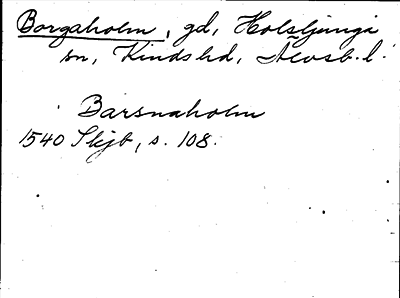 Borgaholm, gd, Holsljunga
sn, Kinds hd, Älvsb. l.
Barsnaholm
1540 Skjb, s. 108.